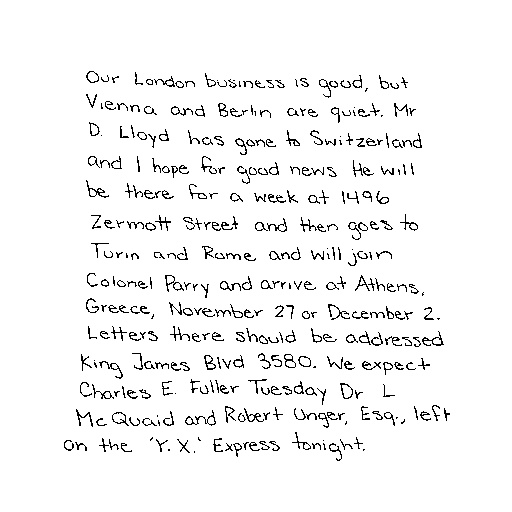 Our London business is good, but
Vienna and Berlin are quiet. Mr
D. Lloyd has gone to Switzerland
and I hope for good news He will
be there for a week at 1496
Zermott Street and then goes to
Turin and Rome and will join
Colonel Parry and arrive at Athens,
Greece, November 27 or December 2.
Letters there should be addressed
King James Blvd 3580. We expect
Charles E. Fuller Tuesday Dr L
McQuaid and Robert Unger, Esq., left
on the 'Y. X.' Express tonight.